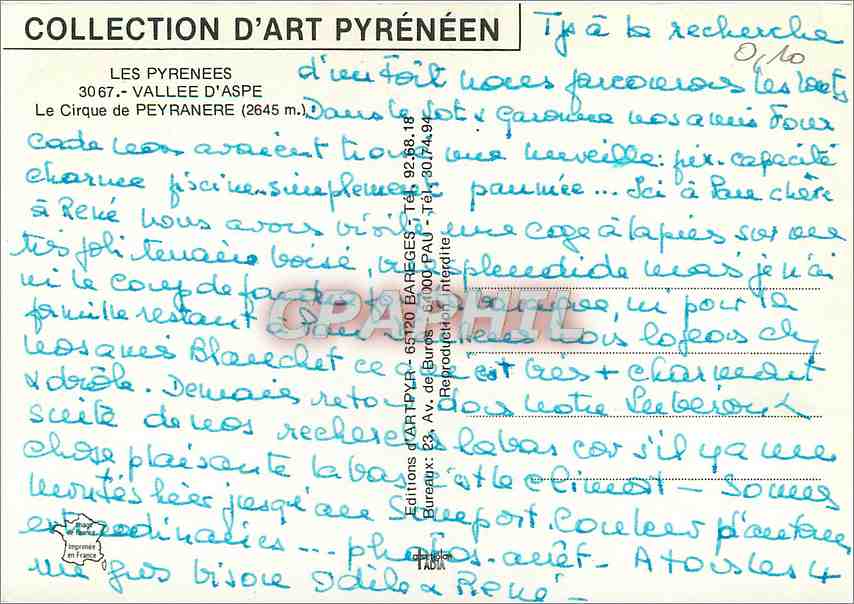 COLLECTION D'ART PYRÉNÉEN
LES PYRENEES
3067.- VALLEE D'ASPE
Le Cirque de PEYRANERE (2645 m.)
Tjs à la recherche
0,10
d'un toit nous parcourons les
Dans le Lot & Garonne nos amis Four
cade nous avaient trouvé une merveille: prix. capacité
charme piscine. simplement paumée... Ici à Pau chère
à René nous avons visité une cage à lapins sur un
très joli terrain boisé, vue splendide mais je n'ai
ni le coup de foudre pour la baraque, ni pour la
famille restant à Pau. nous logeons chez
nos amis Blanchet ce qui est très + charmant
& drôle. Demain retour dans notre Luberon &
suite de nos recherches labas car s'il y a une
chose plaisante labas c'est le climat - Sommes
montés hier jusqu'au Somport. Couleurs d'automne
extraordinaires... photos. arrêt - A tous les 4
une gros bisou Odile & René -
Editions d'ARTPYR - 65120 BAREGES - Tél. 92.68.18
Bureaux: 23, Av. de Buros - 64000 PAU - Tél. 30.74.94
Reproduction interdite
CPAPHIL
Image de France
Imprimée en France